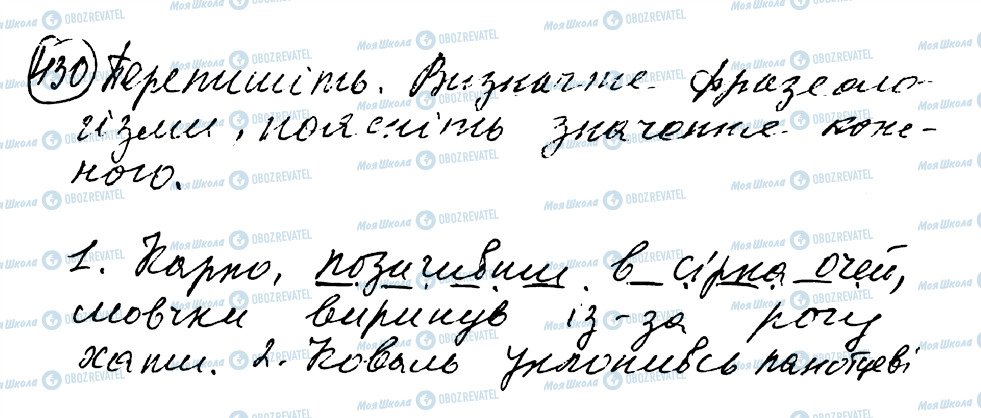 430 Перепишіть. Визначте фразеоло-
гізми, поясніть значення кож-
ного.
1. Карпо, позичивши в сірка очей,
мовчки виринув із-за рогу
хати. 2. Коваль уклонивсь панотцеві